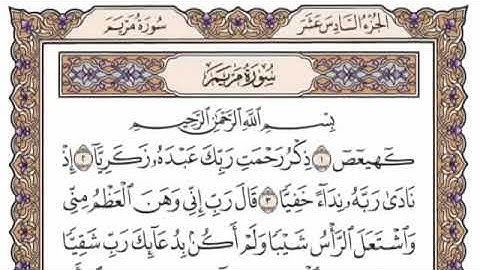 الجزء السادس عشر
سورة مريم
سورة مريم
بِسْمِ ٱللَّهِ ٱلرَّحْمَٰنِ ٱلرَّحِيمِ
كٓهيعٓصٓ ١ ذِكْرُ رَحْمَتِ رَبِّكَ عَبْدَهُۥ زَكَرِيَّآ ٢ إِذْ
نَادَىٰ رَبَّهُۥ نِدَآءً خَفِيًّا ٣ قَالَ رَبِّ إِنِّي وَهَنَ ٱلْعَظْمُ مِنِّي
وَٱشْتَعَلَ ٱلرَّأْسُ شَيْبًا وَلَمْ أَكُنۢ بِدُعَآئِكَ رَبِّ شَقِيًّا